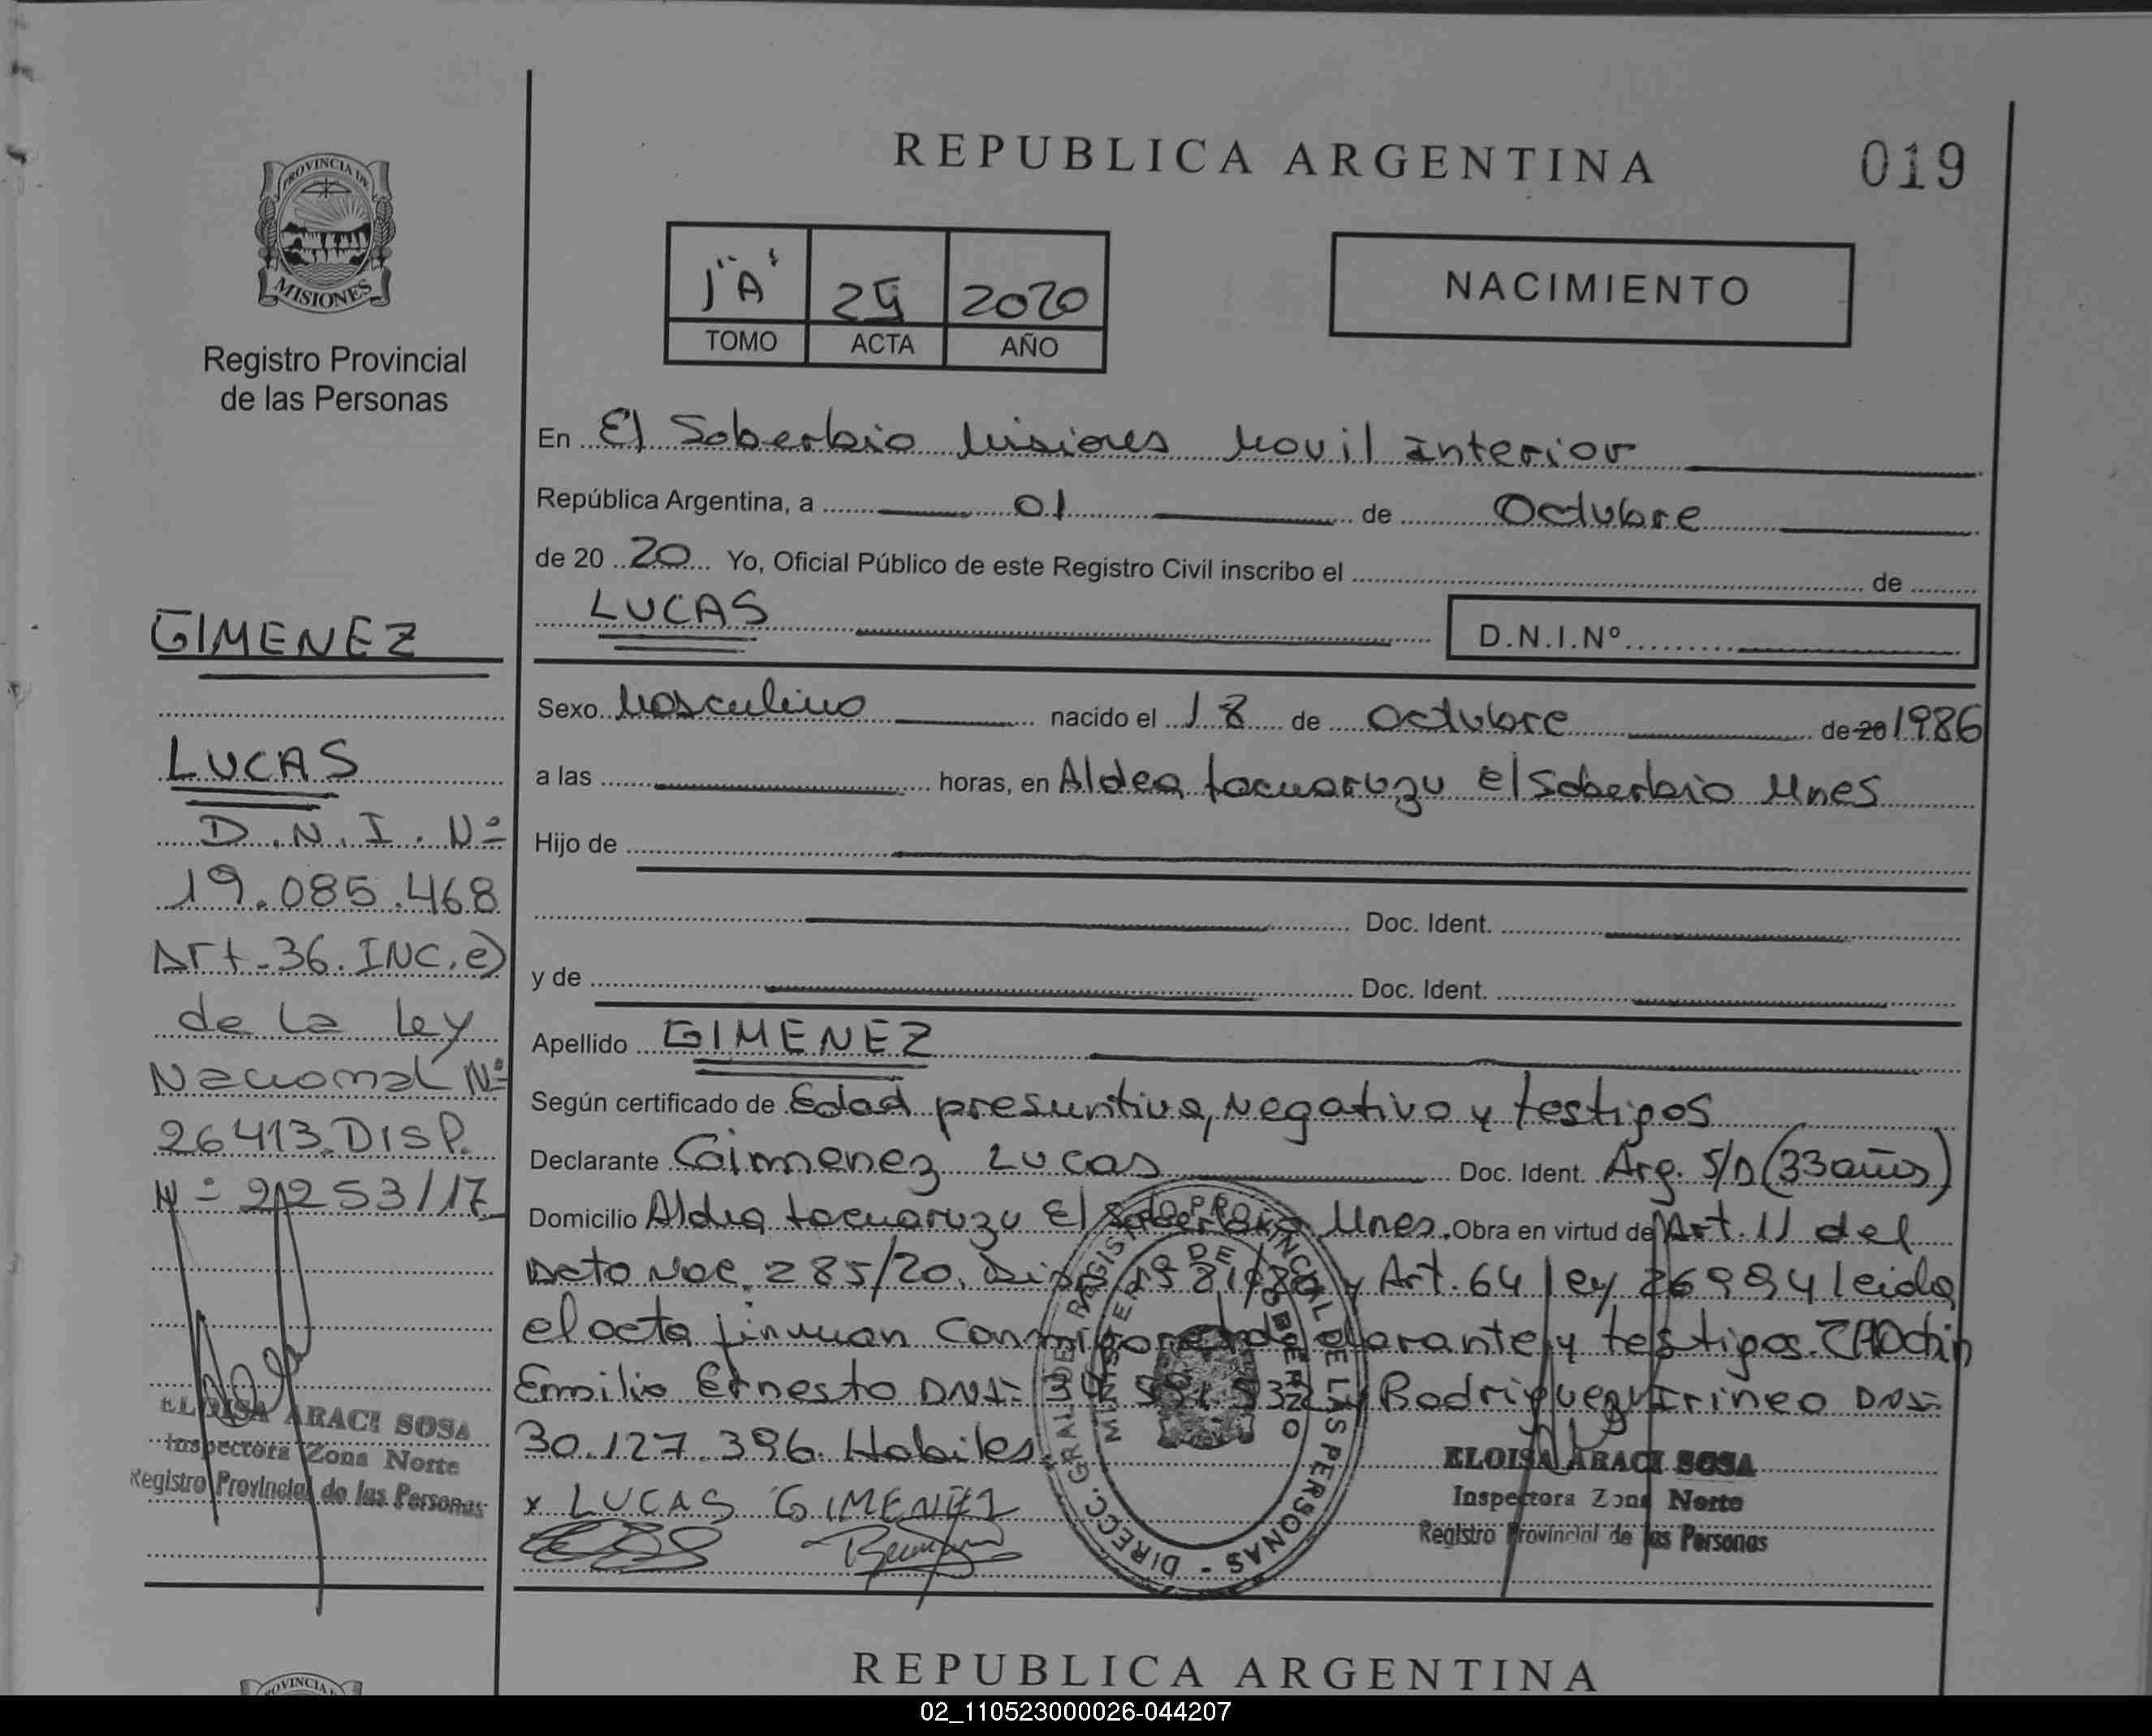 REPUBLICA ARGENTINA
019
PROVINCIA DE
MISIONES
Registro Provincial
de las Personas
1"A" 25 2020
TOMO ACTA AÑO
NACIMIENTO
En El Soberbio Misiones Movil Interior
República Argentina, a 01 de Octubre
de 20 20 Yo, Oficial Público de este Registro Civil inscribo el de
LUCAS
D.N.I.Nº
Sexo Masculino nacido el 18 de Octubre de 20 1986
a las horas, en Aldea tacuaruzu El Soberbio Mnes
Hijo de
Doc. Ident.
y de Doc. Ident.
Apellido GIMENEZ
Según certificado de Edad presuntiva, Negativo y testigos
Declarante Gimenez Lucas Doc. Ident. Arg. S/D (33 años)
Domicilio Aldea tacuaruzu El Soberbio Mnes. Obra en virtud de Art. 11 del
Dcto Nac. 285/20. Art. 64 ley 26994 leida
el acta firman declarante y testigos.
Emilio Ernesto DNI: y Rodriguez Irineo DNI:
30.127.396. Habiles
x LUCAS GIMENEZ
GIMENEZ
LUCAS
D.N.I. Nº
19.085.468
Art. 36. INC. e)
de la Ley
Nacional Nº
26413. DISP.
ELOISA ARACI SOSA
Inspectora Zona Norte
Registro Provincial de las Personas
ELOISA ARACI SOSA
Inspectora Zona Norte
Registro Provincial de las Personas
DIRECC. GRAL DEL REGISTRO PROVINCIAL DE LAS PERSONAS
MINISTERIO DE GOBIERNO
REPUBLICA ARGENTINA
02_110523000026-044207